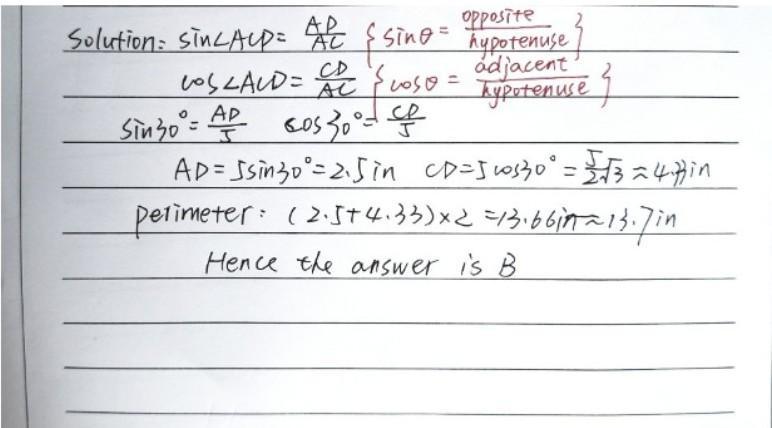 Solution: sin∠ACD = AD/AC {sinθ = opposite/hypotenuse}
cos∠ACD = CD/AC {cosθ = adjacent/hypotenuse}
sin30° = AD/5 cos30° = CD/5
AD = 5sin30° = 2.5in CD = 5cos30° = 5/2√3 ≈ 4.33in
perimeter: (2.5+4.33)×2 = 13.66in ≈ 13.7in
Hence the answer is B